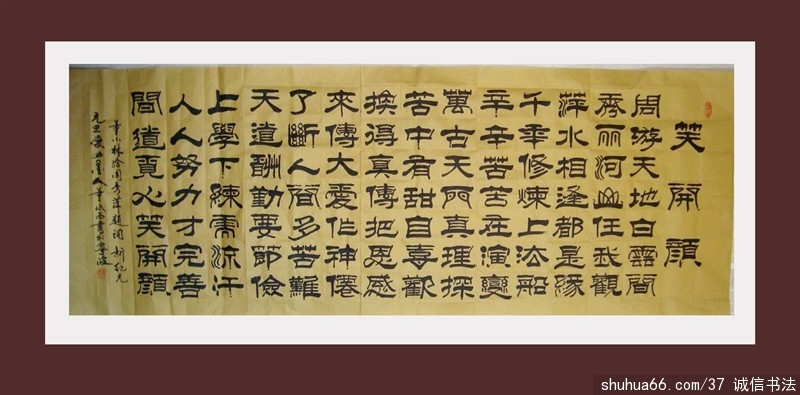 笑開顏
周游天地白雲間
秀丽河山任我觀
萍水相逢都是缘
千年修煉上法船
辛辛苦苦在演變
萬古天真理探
苦中有甜自喜歡
换得真傳把恩感
來傳大愛作神僊
了斷人間多苦難
天道酬勤要節儉
上學下練需流汗
人人努力才完善
問道心笑開顏
董小林給周秀萍題詞 新纪元
元旦書於寧波
shuhua66.com/37 诚信书法